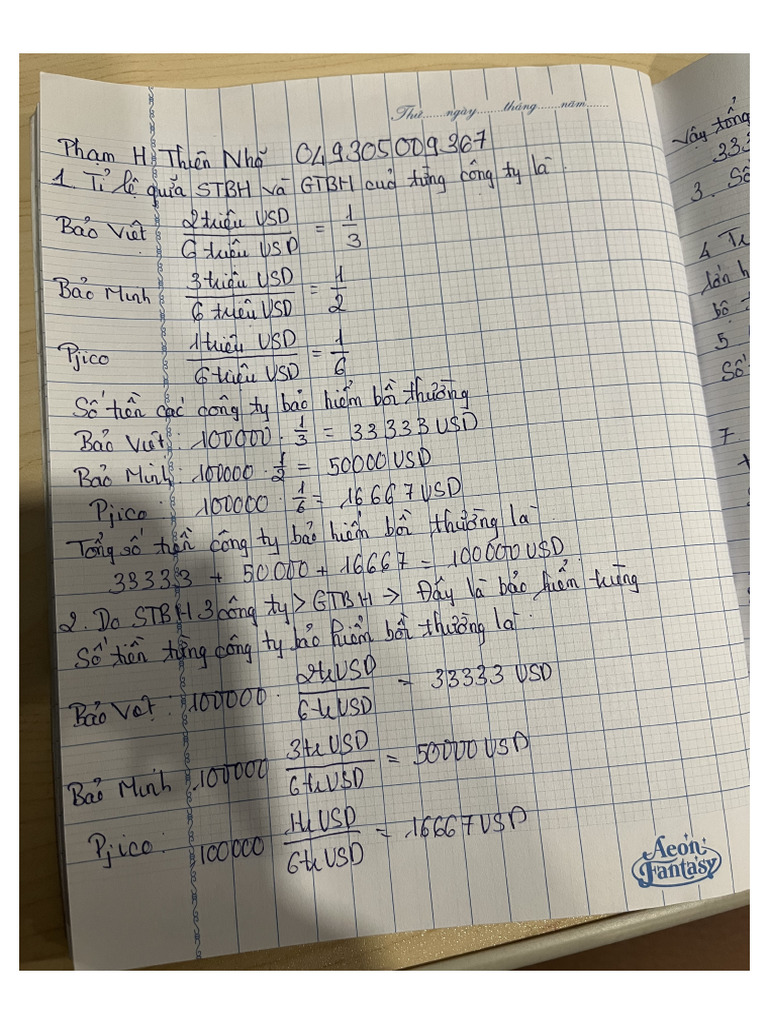 Thứ.......ngày.......tháng.......năm.......
Phạm H Thiên Nhố 049305009367
1. Tỉ lệ giữa STBH và GTBH cuả từng công ty là :
Bảo Việt 2 triệu USD / 6 triệu USD = 1/3
Bảo Minh 3 triệu USD / 6 triệu USD = 1/2
Pjico 1 triệu USD / 6 triệu USD = 1/6
Số tiền các công ty bảo hiểm bồi thường
Bảo Việt : 100000 . 1/3 = 33333 USD
Bảo Minh : 100000 . 1/2 = 50000 USD
Pjico : 100000 . 1/6 = 16667 USD
Tổng số tiền công ty bảo hiểm bồi thường là :
33333 + 50000 + 16667 = 100000 USD
2. Do STBH 3 công ty > GTBH => Đấy là bảo hiểm trùng
Số tiền từng công ty bảo hiểm bồi thường là :
Bảo Vệt : 100000 . 2tr USD / 6tr USD = 33333 USD
Bảo Minh : 100000 3tr USD / 6tr USD = 50000 USD
Pjico : 100000 1tr USD / 6tr USD = 16667 USD
Aeon
Fantasy
Vậy tổng
333
3. Số
4. Tr
bộ
5.
Số
7.